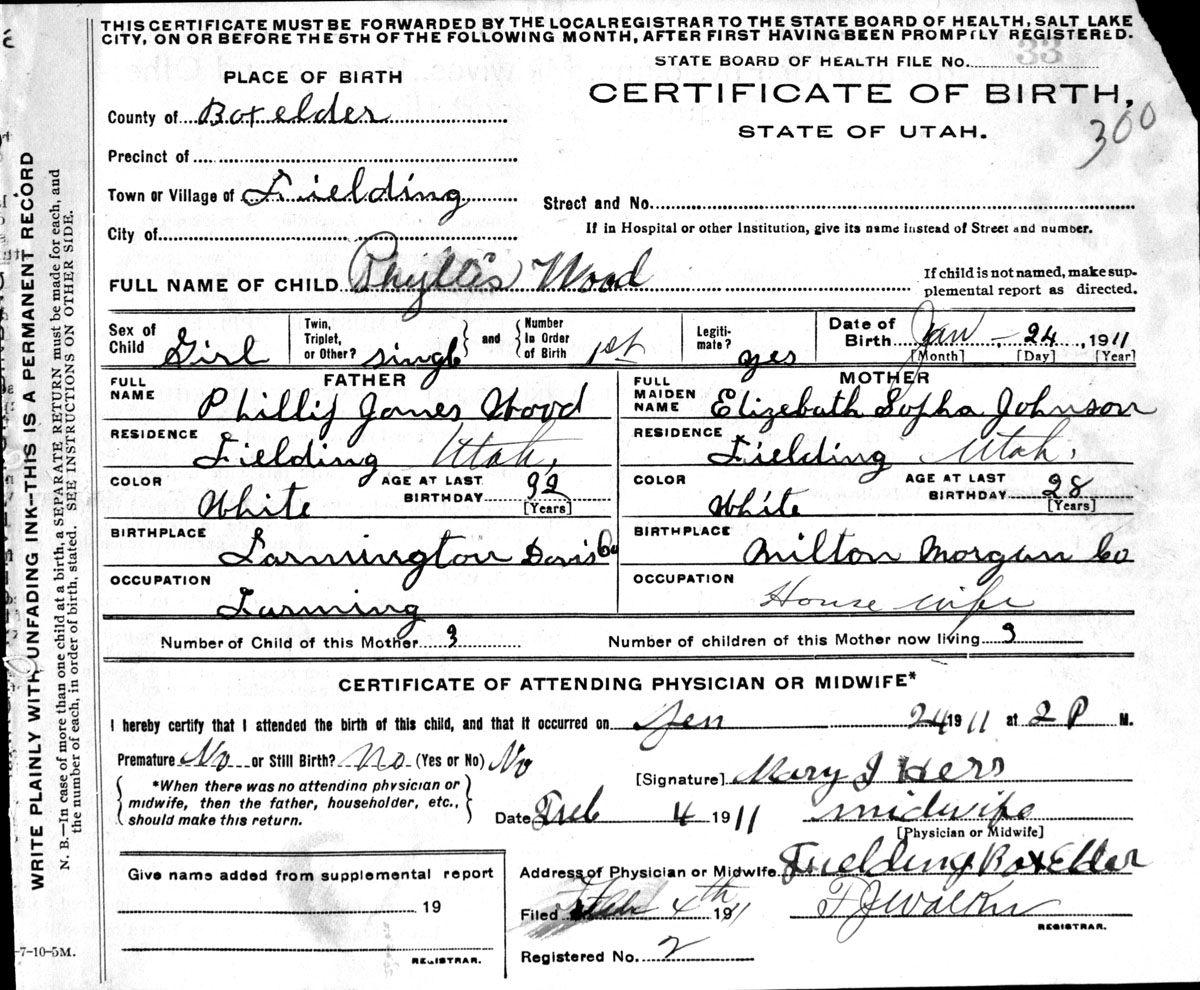 THIS CERTIFICATE MUST BE FORWARDED BY THE LOCAL REGISTRAR TO THE STATE BOARD OF HEALTH, SALT LAKE
CITY, ON OR BEFORE THE 5TH OF THE FOLLOWING MONTH, AFTER FIRST HAVING BEEN PROMPTLY REGISTERED.
STATE BOARD OF HEALTH FILE No. 33
PLACE OF BIRTH
CERTIFICATE OF BIRTH,
STATE OF UTAH.
300
County of Boxelder
Precinct of
Town or Village of Fielding
Street and No.
City of
If in Hospital or other Institution, give its name instead of Street and number.
FULL NAME OF CHILD Phyllis Wood
If child is not named, make sup-
plemental report as directed.
Sex of Child Girl
Twin, Triplet, or Other? single
and
Number In Order of Birth 1st
Legiti-mate? yes
Date of Birth Jan. 24, 1911
[Month] [Day] [Year]
FATHER
FULL NAME Phillip James Wood
RESIDENCE Fielding Utah,
COLOR White
AGE AT LAST BIRTHDAY 32
[Years]
BIRTHPLACE Farmington Davis Co
OCCUPATION Farming
MOTHER
FULL MAIDEN NAME Elizebath Sopha Johnson
RESIDENCE Fielding Utah,
COLOR White
AGE AT LAST BIRTHDAY 28
[Years]
BIRTHPLACE Milton Morgan Co
OCCUPATION House wife
Number of Child of this Mother 3
Number of children of this Mother now living 3
CERTIFICATE OF ATTENDING PHYSICIAN OR MIDWIFE*
I hereby certify that I attended the birth of this child, and that it occurred on Jen 24 1911 at 2 P M.
Premature No or Still Birth? No (Yes or No) No
*When there was no attending physician or
midwife, then the father, householder, etc.,
should make this return.
[Signature] Mary J Hess
Date Feb 4 1911
midwife
[Physician or Midwife]
Address of Physician or Midwife Fielding Box Elder
Filed Feb 4th 1911
F J Walker
REGISTRAR.
Registered No. 2
Give name added from supplemental report
19
REGISTRAR.
-7-10-5M.
WRITE PLAINLY WITH UNFADING INK--THIS IS A PERMANENT RECORD
N. B.—In case of more than one child at a birth, a SEPARATE RETURN must be made for each, and
the number of each, in order of birth, stated. SEE INSTRUCTIONS ON OTHER SIDE.